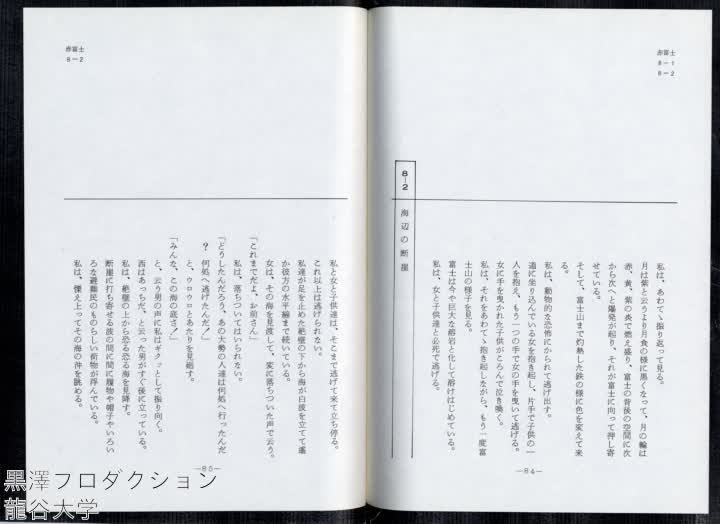 赤富士
8-1
8-2
私は、あわてゝ振り返って見る。
月は紫と云うより月食の様に黒くなって、月の輪は
赤、黄、紫の炎で燃え盛り、富士の背後の空間に次
から次へと爆発が起り、それが富士に向って押し寄
せている。
そして、富士山まで灼熱した鉄の様に色を変えて来
る。
私は、動物的な恐怖にかられて逃げ出す。
道に坐り込んでいる女を抱き起し、片手で子供の一
人を抱え、もう一つの手で女の手を曳いて逃げる。
女に手を曳かれた子供がころんで泣き喚く。
私は、それをあわてゝ抱き起しながら、もう一度富
士山の様子を見る。
富士は今や巨大な熔岩と化して熔けはじめている。
私は、女と子供達と必死で逃げる。
8-2 海辺の断崖
—84—
赤富士
8-2
私と女と子供達は、そこまで逃げて来て立ち停る。
これ以上は逃げられない。
私達が足を止めた絶壁の下から海が白波を立てて遙
か彼方の水平線まで続いている。
女は、その海を見渡して、変に落ちついた声で云う。
「これまでだよ、お前さん」
私は、落ちついてはいられない。
「どうしたんだろう、あの大勢の人達は何処へ行ったんだ
?
何処へ逃げたんだ!」
と、ウロウロとあたりを見廻す。
「みんな、この海の底さ!」
と、云う男の声に私はギクッとして振り向く。
西はあっちだ、と云った男がすぐ後に立っている。
私は、絶壁の上から恐る恐る海を見降す。
断崖に打ち寄せる波の間に間に履物や帽子やいろい
ろな避難民のものらしい荷物が浮んでいる。
私は、慄え上ってその海の沖を眺める。
—85—
黒澤プロダクション
龍谷大学